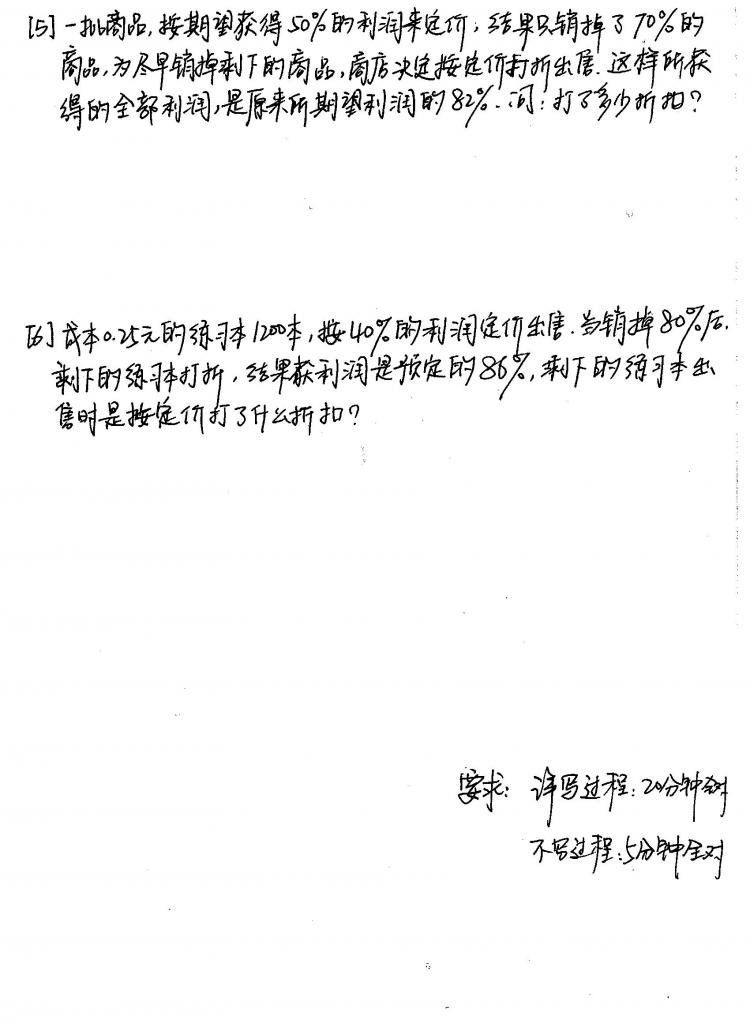 [5] 一批商品,按期望获得50%的利润来定价,结果只销掉了70%的
商品,为尽早销掉剩下的商品,商店决定按定价打折出售.这样所获
得的全部利润,是原来所期望利润的82%.问:打了多少折扣?
[6] 成本0.25元的练习本1200本,按40%的利润定价出售.当销掉80%后.
剩下的练习本打折,结果获利润是预定的86%,剩下的练习本出
售时是按定价打了什么折扣?
要求: 详写过程:20分钟全对
不写过程:5分钟全对